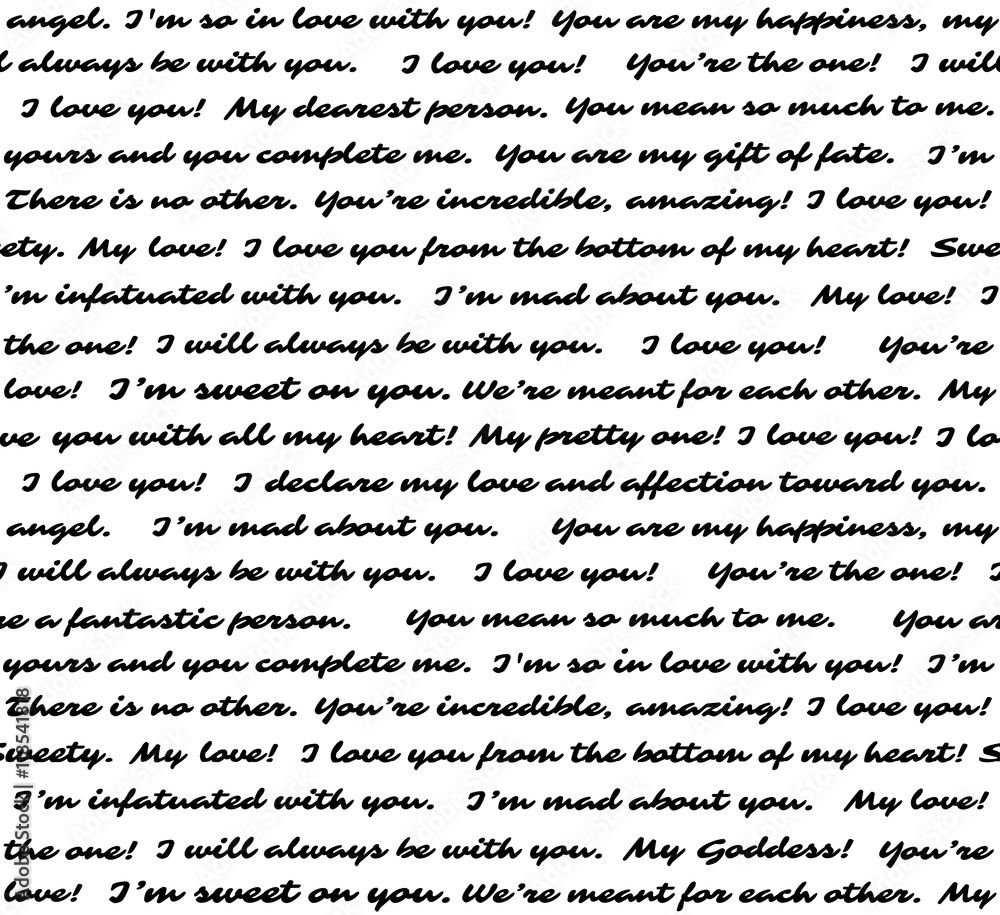 angel. I'm so in love with you! You are my happiness, my
always be with you. I love you! You're the one! I will
I love you! My dearest person. You mean so much to me.
yours and you complete me. You are my gift of fate. I'm
There is no other. You're incredible, amazing! I love you!
ety. My love! I love you from the bottom of my heart! Swe
'm infatuated with you. I'm mad about you. My love! I
the one! I will always be with you. I love you! You're
love! I'm sweet on you. We're meant for each other. My
ve you with all my heart! My pretty one! I love you! I lo
I love you! I declare my love and affection toward you.
angel. I'm mad about you. You are my happiness, my
I will always be with you. I love you! You're the one! I
re a fantastic person. You mean so much to me. You ar
yours and you complete me. I'm so in love with you! I'm
There is no other. You're incredible, amazing! I love you!
Sweety. My love! I love you from the bottom of my heart! S
I'm infatuated with you. I'm mad about you. My love!
the one! I will always be with you. My Goddess! You're
love! I'm sweet on you. We're meant for each other. My